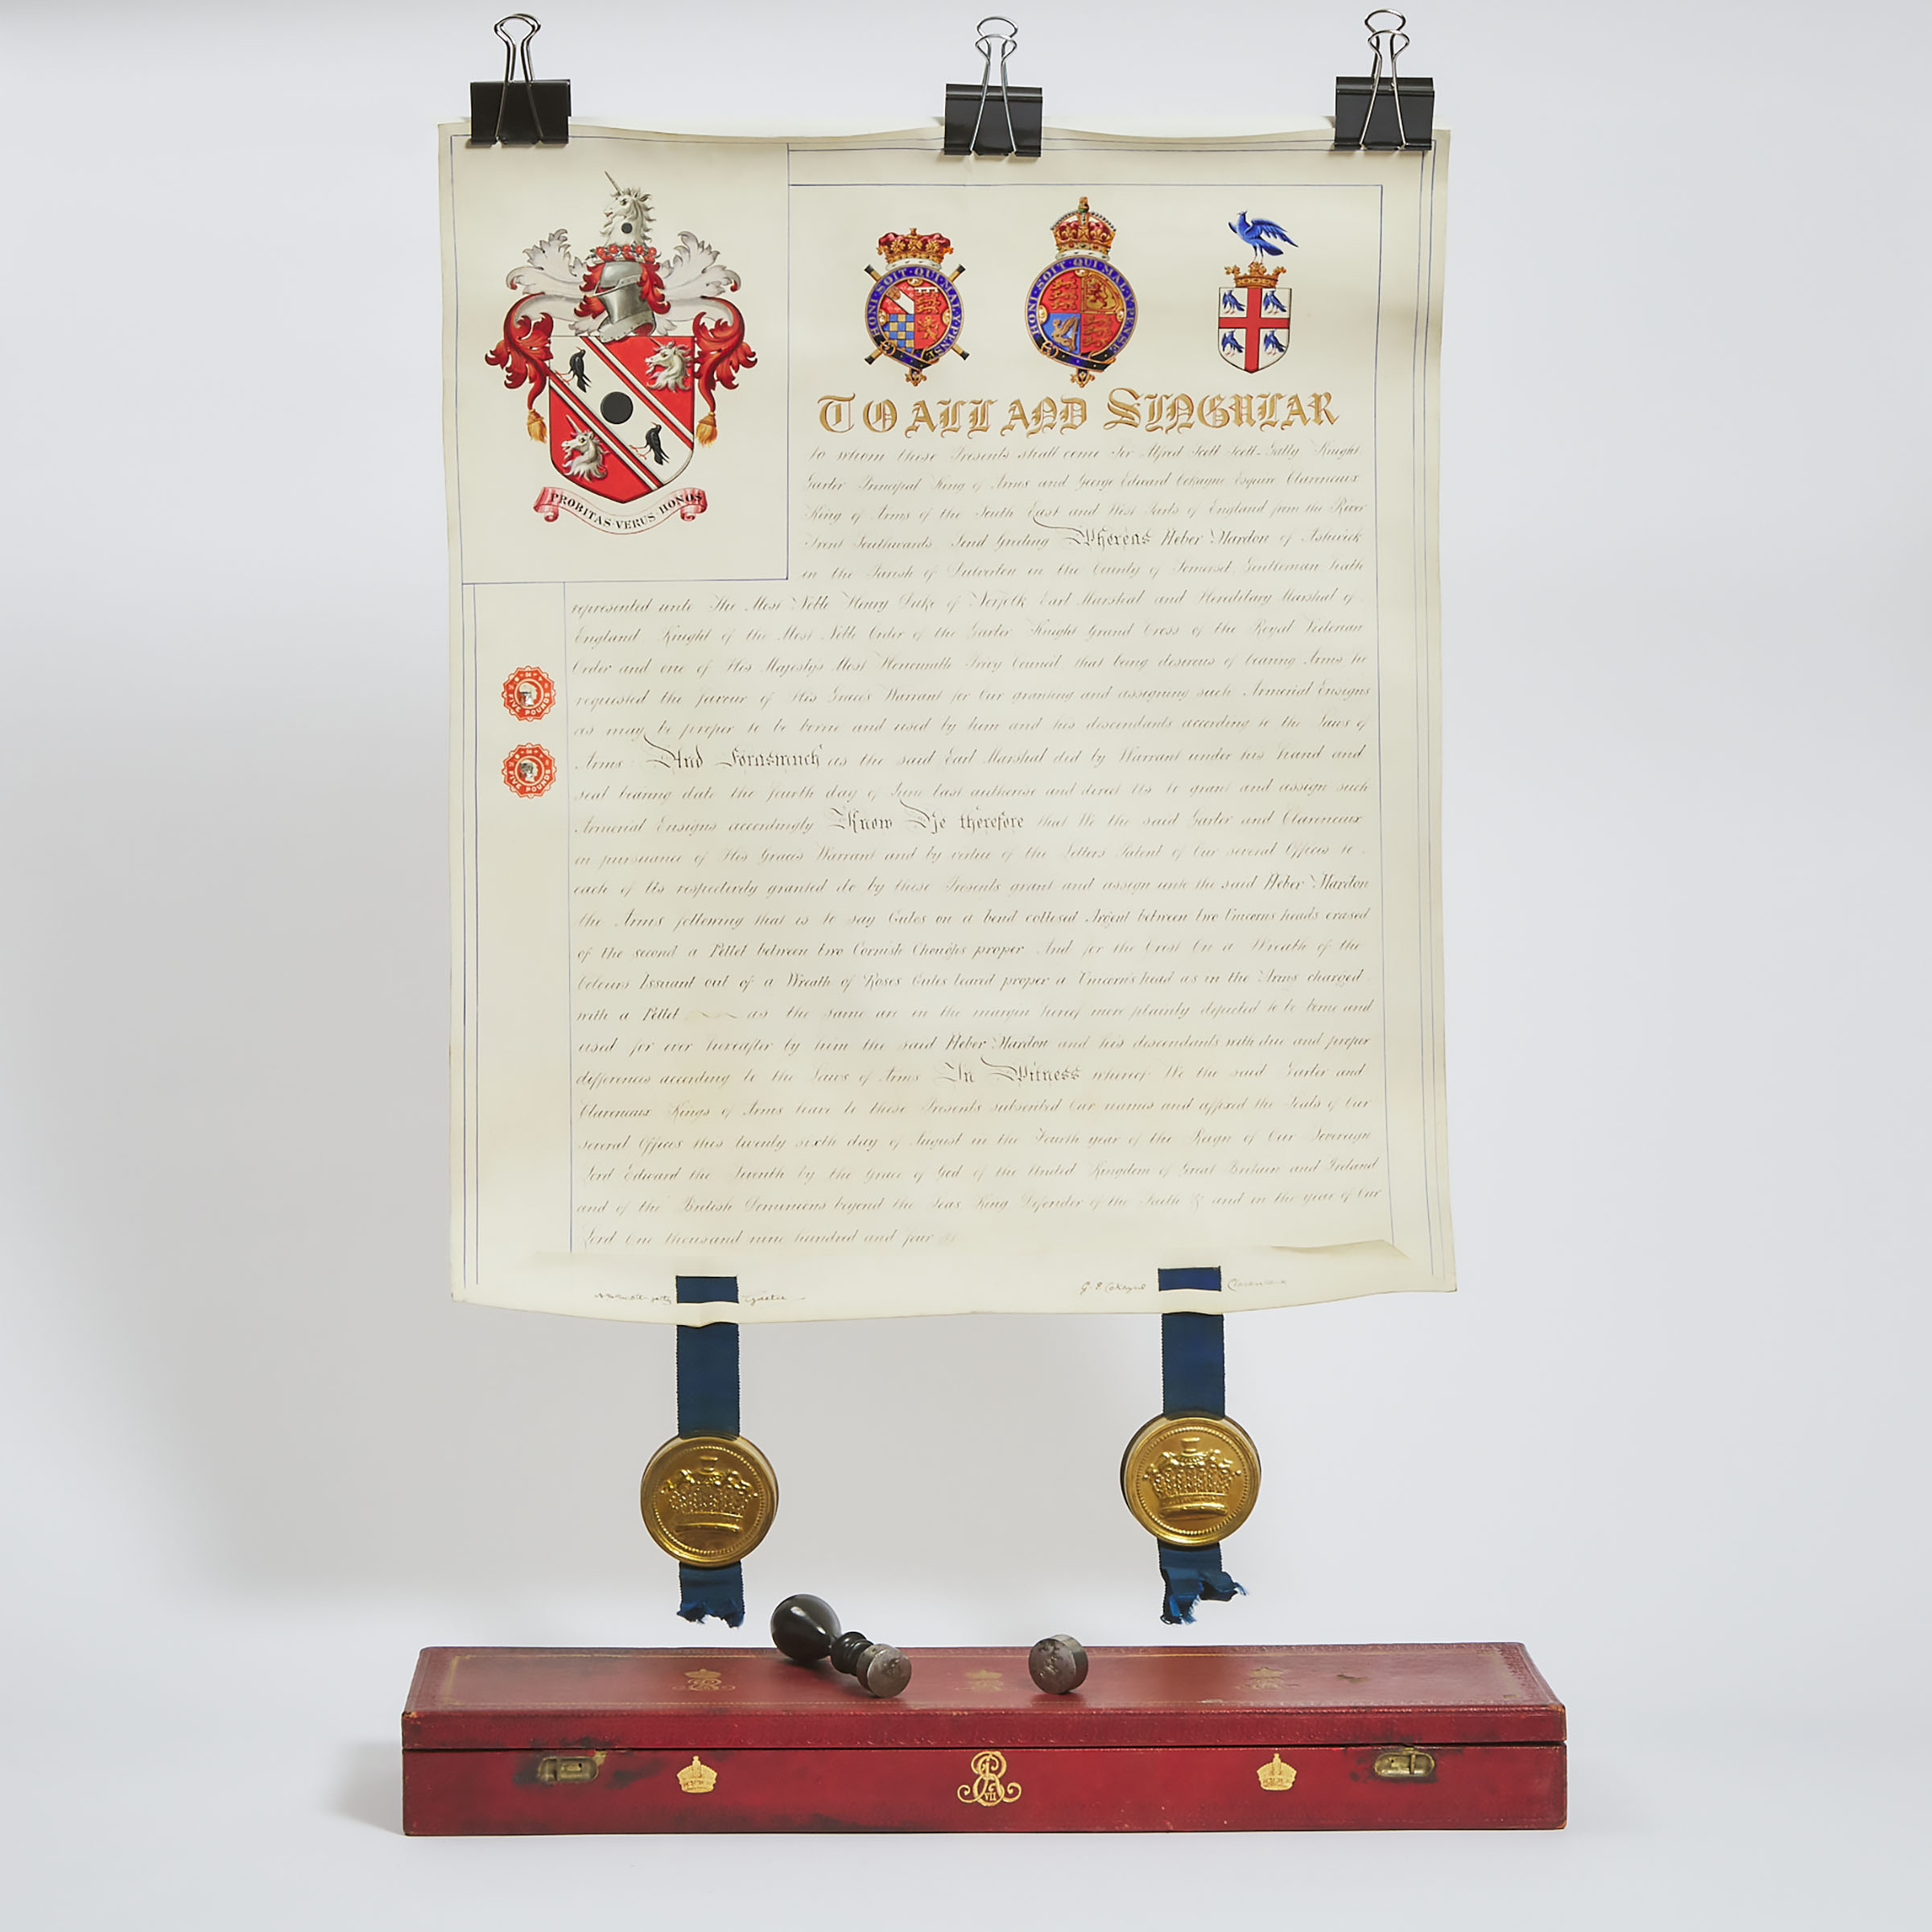 HONI·SOIT·QUI·MAL·Y·PENSE
HONI·SOIT·QUI·MAL·Y·PENSE
PROBITAS·VERUS·HONOS
TO ALL AND SINGULAR
to whom these Presents shall come Sir Alfred Scott Scott-Gatty Knight
Garter Principal King of Arms and George Edward Cokayne Esquire Clarenceux
King of Arms of the South East and West Parts of England from the River
Trent Southwards Send Greeting Whereas Heber Mardon of Ashwick
in the Parish of Dulverton in the County of Somerset, Gentleman hath
represented unto The Most Noble Henry Duke of Norfolk Earl Marshal and Hereditary Marshal of
England Knight of the Most Noble Order of the Garter Knight Grand Cross of the Royal Victorian
Order and one of His Majesty's Most Honourable Privy Council that being desirous of bearing Arms he
requested the favour of His Grace's Warrant for Our granting and assigning such Armorial Ensigns
as may be proper to be borne and used by him and his descendants according to the Laws of
Arms And Forasmuch as the said Earl Marshal did by Warrant under his hand and
seal bearing date the fourth day of June last authorise and direct Us to grant and assign such
Armorial Ensigns accordingly Know Ye therefore that We the said Garter and Clarenceux
in pursuance of His Grace's Warrant and by virtue of the Letters Patent of Our several Offices to
each of Us respectively granted do by these Presents grant and assign unto the said Heber Mardon
the Arms following that is to say Gules on a bend cottised Argent between two Unicorns heads erased
of the second a Pellet between two Cornish Choughs proper And for the Crest On a Wreath of the
Colours Issuant out of a Wreath of Roses Gules leaved proper a Unicorn's head as in the Arms charged
with a Pellet as the same are in the margin hereof more plainly depicted to be borne and
used for ever hereafter by him the said Heber Mardon and his descendants with due and proper
differences according to the Laws of Arms In Witness whereof We the said Garter and
Clarenceux Kings of Arms have to these Presents subscribed Our names and affixed the Seals of Our
several Offices this twenty sixth day of August in the Fourth year of the Reign of Our Sovereign
Lord Edward the Seventh by the Grace of God of the United Kingdom of Great Britain and Ireland
and of the British Dominions beyond the Seas, King, Defender of the Faith &c and in the year of Our
Lord One thousand nine hundred and four
FIVE POUNDS
FIVE POUNDS
Garter
G. E. Cokayne Clarenceux
VII